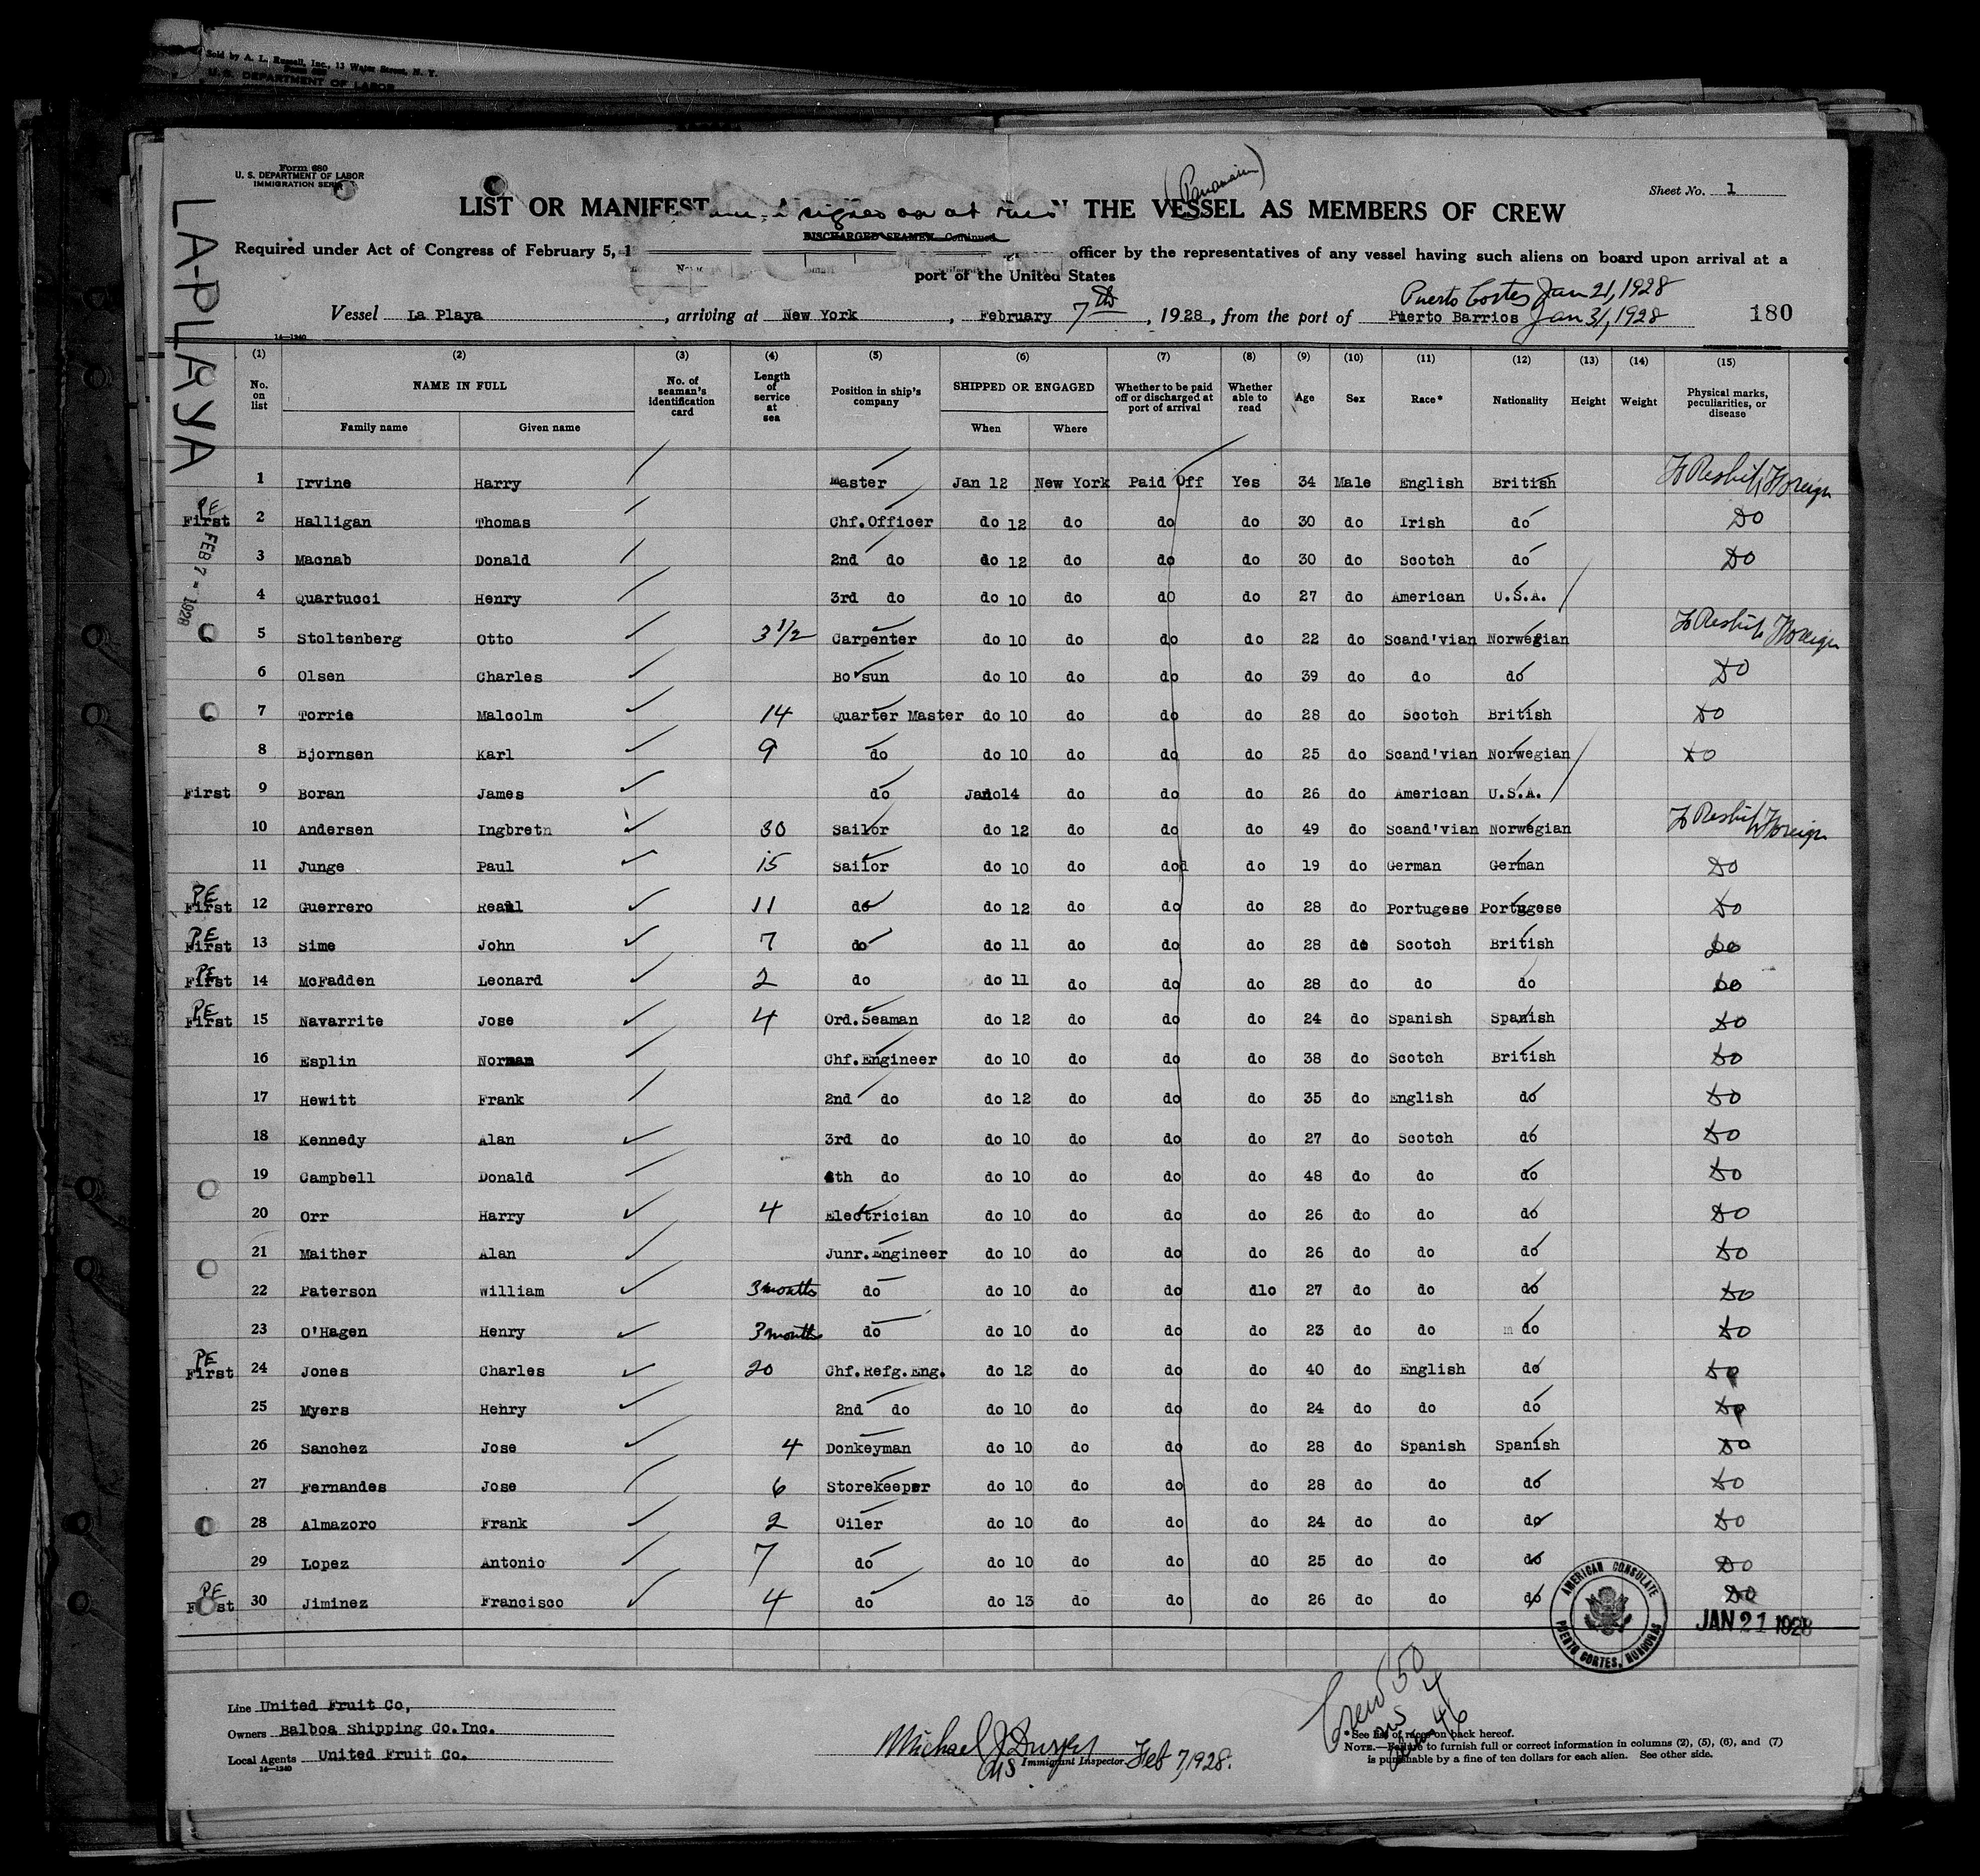 Sold by A. L. Russell, Inc., 13 Water Street, N. Y.
U. S. DEPARTMENT OF LABOR
Form 680
U. S. DEPARTMENT OF LABOR
IMMIGRATION SERV
(Panamain)
Sheet No. 1
LIST OR MANIFEST signed on at N THE VESSEL AS MEMBERS OF CREW
DISCHARGED SEAMEN—Continued
Required under Act of Congress of February 5, 1 officer by the representatives of any vessel having such aliens on board upon arrival at a
port of the United States
LA-PLAYA
Puerto Cortes Jan 21, 1928
Vessel La Playa, arriving at New York, February 7th, 1928, from the port of Puerto Barrios Jan 31, 1928 180
14—1240
(1) (2) (3) (4) (5) (6) (7) (8) (9) (10) (11) (12) (13) (14) (15)
No. on list NAME IN FULL No. of seaman's identification card Length of service at sea Position in ship's company SHIPPED OR ENGAGED Whether to be paid off or discharged at port of arrival Whether able to read Age Sex Race* Nationality Height Weight Physical marks, peculiarities, or disease
Family name Given name When Where
1 Irvine Harry Master Jan 12 New York Paid Off Yes 34 Male English British To Reship Foreign
PE First 2 Halligan Thomas Chf.Officer do 12 do do do 30 do Irish do DO
FEB 7 - 1928
3 Macnab Donald 2nd do do 12 do do do 30 do Scotch do DO
4 Quartucci Henry 3rd do do 10 do do do 27 do American U.S.A.
5 Stoltenberg Otto 3 1/2 Carpenter do 10 do do do 22 do Scand'vian Norwegian To Reship Foreign
6 Olsen Charles Bo'sun do 10 do do do 39 do do do DO
7 Torrie Malcolm 14 Quarter Master do 10 do do do 28 do Scotch British DO
8 Bjornsen Karl 9 do do 10 do do do 25 do Scand'vian Norwegian DO
First 9 Boran James do Jando14 do do do 26 do American U.S.A.
10 Andersen Ingbretn 30 Sailor do 12 do do do 49 do Scand'vian Norwegian To Reship Foreign
11 Junge Paul 15 Sailor do 10 do dod do 19 do German German DO
PE First 12 Guerrero Reaul 11 do do 12 do do do 28 do Portugese Portugese DO
PE First 13 Sime John 7 do do 11 do do do 28 do Scotch British DO
PE First 14 McFadden Leonard 2 do do 11 do do do 28 do do do DO
PE First 15 Navarrite Jose 4 Ord.Seaman do 12 do do do 24 do Spanish Spanish DO
16 Esplin Norman Chf.Engineer do 10 do do do 38 do Scotch British DO
17 Hewitt Frank 2nd do do 12 do do do 35 do English do DO
18 Kennedy Alan 3rd do do 10 do do do 27 do Scotch do DO
19 Campbell Donald 4th do do 10 do do do 48 do do do DO
20 Orr Harry 4 Electrician do 10 do do do 26 do do do DO
21 Maither Alan Junr.Engineer do 10 do do do 26 do do do DO
22 Paterson William 3 months do do 10 do do dlo 27 do do do DO
23 O'Hagen Henry 3 months do do 10 do do do 23 do do do DO
PE First 24 Jones Charles 20 Chf.Refg.Eng. do 12 do do do 40 do English do DO
25 Myers Henry 2nd do do 10 do do do 24 do do do DO
26 Sanchez Jose 4 Donkeyman do 10 do do do 28 do Spanish Spanish DO
27 Fernandes Jose 6 Storekeeper do 10 do do do 28 do do do DO
28 Almazoro Frank 2 Oiler do 10 do do do 24 do do do DO
29 Lopez Antonio 7 do do 10 do do do 25 do do do DO
PE First 30 Jiminez Francisco 4 do do 13 do do do 26 do do do DO
AMERICAN CONSULATE
PUERTO CORTES, HONDURAS
JAN 21 1928
Line United Fruit Co,
Owners Balboa Shipping Co.Inc.
Local Agents United Fruit Co.
14—1240
Michael J Feb 7, 1928.
Immigrant Inspector
Crew 50
4
46
*See list of races on back hereof.
NOTE.—Failure to furnish full or correct information in columns (2), (5), (6), and (7)
is punishable by a fine of ten dollars for each alien. See other side.